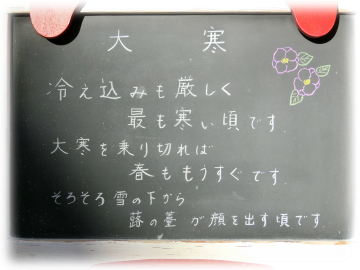 大寒
冷え込みも厳しく
最も寒い頃です
大寒を乗り切れば
春ももうすぐです
そろそろ雪の下から
蕗の薹が顔を出す頃です